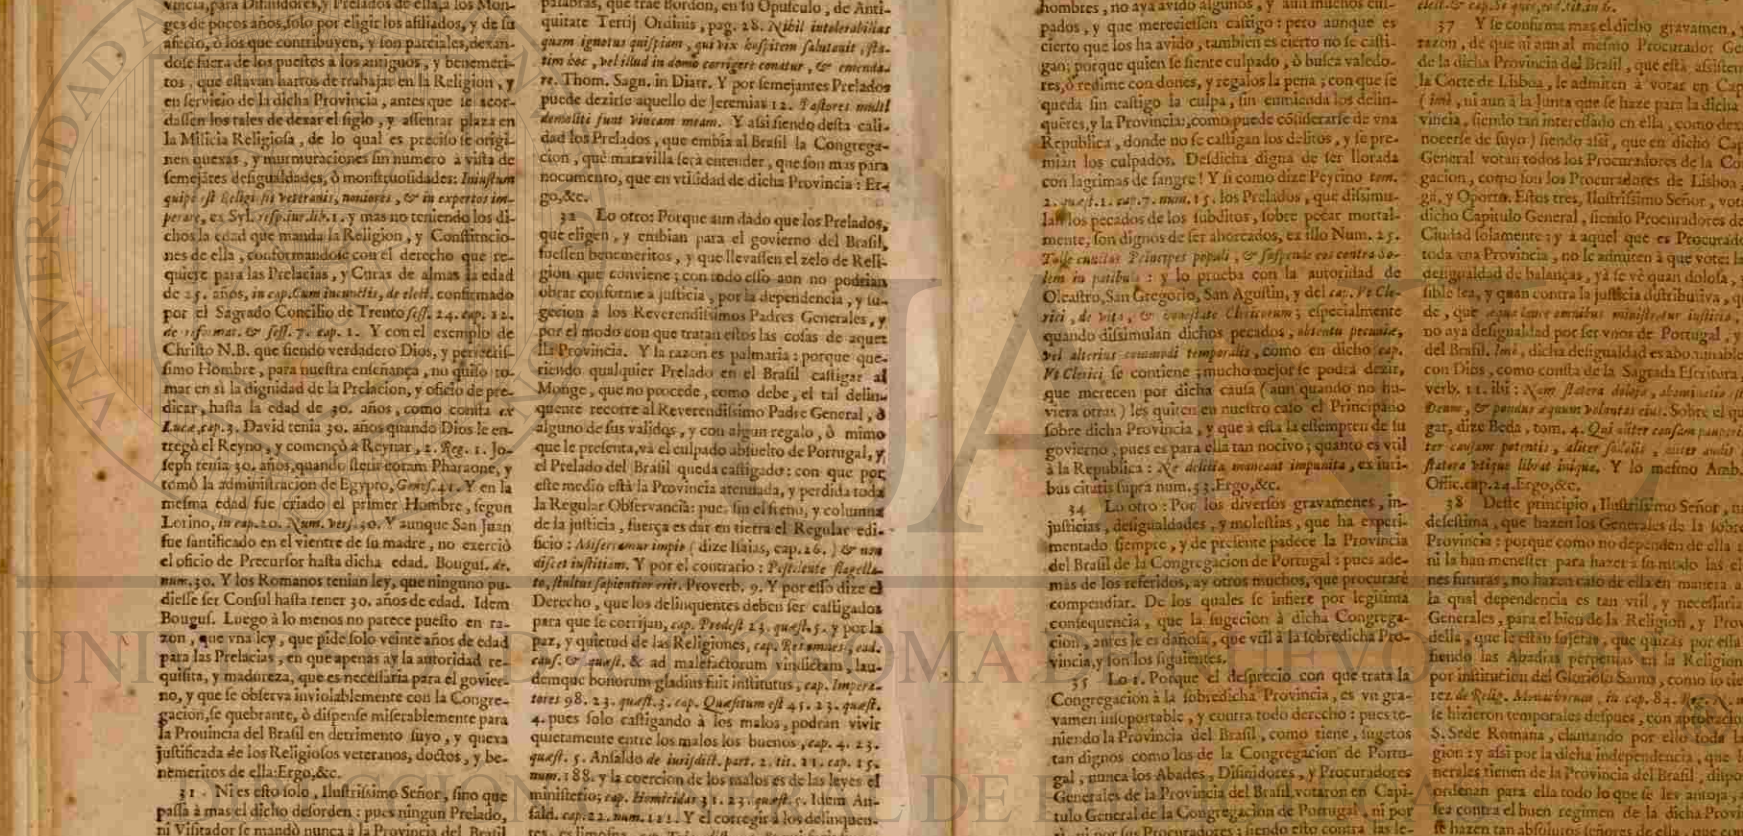 vincia, para Difinidores, y Prelados de ella, a los Mon-
ges de pocos años, solo por eligir los afiliados, y de su
afecto, ò los que contribuyen, y son parciales, dexan-
dose fuera de los puestos à los antiguos, y benemeri-
tos, que estavan hartos de trabajar en la Religion, y
en servicio de la dicha Provincia, antes que se acor-
dassen los tales de dexar el siglo, y assentar plaza en
la Milicia Religiosa, de lo qual es preciso se origi-
nen quexas, y murmuraciones sin numero à vista de
semejātes desigualdades, ò monstruosidades: Iniustum
quipè est Religiosis veteranis, noviores, & in expertos im-
perare, ex Syl. resp. iur. lib. 1. y mas no teniendo los di-
chos la edad que manda la Religion, y Constitucio-
nes de ella, conformandose con el derecho que re-
quiere para las Prelacias, y Curas de almas la edad
de 25. años, in cap. Cum in cunctis, de elect. confirmado
por el Sagrado Concilio de Trento sess. 24. cap. 12.
de reformat. & sess. 7. cap. 1. Y con el exemplo de
Christo N.B. que siendo verdadero Dios, y perfectis-
simo Hombre, para nuestra enseñança, no quiso to-
mar en sì la dignidad de la Prelacion, y oficio de pre-
dicar, hasta la edad de 30. años, como consta ex
Lucæ, cap. 3. David tenia 30. años quando Dios le en-
tregò el Reyno, y començò a Reynar, 2. Reg. 1. Jo-
seph tenia 30. años, quando stetit coram Pharaone, y
tomò la administracion de Egypto, Genes. 41. Y en la
mesma edad fue criado el primer Hombre, segun
Lorino, in cap. 20. Num. vers. 30. Y aunque San Juan
fue santificado en el vientre de su madre, no exerciò
el oficio de Precursor hasta dicha edad. Bougus. de.
num. 30. Y los Romanos tenian ley, que ninguno pu-
diesse ser Consul hasta tener 30. años de edad. Idem
Bougus. Luego à lo menos no parece puesto en ra-
zon, que vna ley, que pide solo veinte años de edad
para las Prelacias, en que apenas ay la autoridad re-
quisita, y madureza, que es necessaria para el govier-
no, y que se observa inviolablemente con la Congre-
gacion, se quebrante, ò dispense miserablemente para
la Prouincia del Brasil en detrimento suyo, y quexa
justificada de los Religiosos veteranos, doctos, y be-
nemeritos de ella: Ergo, &c.
31. Ni es esto solo, Ilustrissimo Señor, sino que
passa à mas el dicho desorden: pues ningun Prelado,
ni Visitador se mandò nunca à la Provincia del Brasil
palabras, que trae Bordon, en su Opusculo, de Anti-
quitate Tertij Ordinis, pag. 28. Nihil intolerabilius
quam ignotus quispiam, qui vix hospitem salutauit, sta-
tim hoc, vel illud in domo corrigere conatur, & emenda-
re. Thom. Sagn. in Diatr. Y por semejantes Prelados
puede dezirse aquello de Jeremias 12. Pastores multi
demoliti sunt vineam meam. Y assi siendo desta cali-
dad los Prelados, que embia al Brasil la Congrega-
cion, què maravilla serà entender, que son mas para
nocumento, que en vtilidad de dicha Provincia: Er-
go, &c.
32 Lo otro: Porque aun dado que los Prelados,
que eligen, y embian para el govierno del Brasil,
fuessen benemeritos, y que llevassen el zelo de Reli-
gion que conviene; con todo esso aun no podrian
obrar conforme à justicia, por la dependencia, y su-
gecion à los Reverendissimos Padres Generales, y
por el modo con que tratan estos las cosas de aque-
lla Provincia. Y la razon es palmaria: porque que-
riendo qualquier Prelado en el Brasil castigar al
Monge, que no procede, como debe, el tal delin-
quente recorre al Reverendissimo Padre General, ò
alguno de sus validos, y con algun regalo, ò mimo
que le presenta, và el culpado absuelto de Portugal, y
el Prelado del Brasil queda castigado: con que por
este medio està la Provincia arruinada, y perdida toda
la Regular Observancia: pues sin el freno, y columna
de la justicia, fuerça es dar en tierra el Regular edi-
ficio: Misereamur impio (dize Isaias, cap. 26.) & non
discet iustitiam. Y por el contrario: Pestilente flagella-
to, stultus sapientior erit. Proverb. 9. Y por esso dize el
Derecho, que los delinquentes deben ser castigados
para que se corrijan, cap. Prodest 23. quæst. 5. y por la
paz, y quietud de las Religiones, cap. ead.
caus. & quæst. & ad malefactorum vindictam, lau-
demque bonorum gladius fuit institutus, cap. Impera-
tores 98. 23. quæst. 3. cap. Quæsitum est 45. 23. quæst.
4. pues solo castigando à los malos, podràn vivir
quietamente entre los malos los buenos, cap. 4. 23.
quæst. 5. Ansaldo de iurisdict. part. 2. tit. 11. cap. 15.
num. 188. y la coercion de los malos es de las leyes el
ministerio; cap. Homicidas 31. 23. quæst. 5. Idem An-
sald. cap. 22. num. 121. Y el corregir à los delinquen-
hombres, no aya avido algunos, y aun muchos cul-
pados, y que mereciessen castigo: pero aunque es
cierto que los ha avido, tambien es cierto no se casti-
gan; porque quien se siente culpado, ò busca valedo-
res, ò redime con dones, y regalos la pena; con que se
queda sin castigo la culpa, sin enmienda los delin-
quētes, y la Provincia: ¡como puede cōsiderarse de vna
Republica, donde no se castigan los delitos, y se pre-
mian los culpados. Desdicha digna de ser llorada
con lagrimas de sangre! Y si como dize Peyrino tom.
2. quæst. 1. cap. 7. num. 15. los Prelados, que dissimu-
lan los pecados de los subditos, sobre pecar mortal-
mente, son dignos de ser ahorcados, ex illo Num. 25.
Tolle cunctos Principes populi, & suspende eos contra So-
lem in patibulis: y lo prueba con la autoridad de
Oleastro, San Gregorio, San Agustin, y del cap. Vt Cle-
rici, de vita, & honestate Clericorum; especialmente
quando dissimulan dichos pecados, obtentu pecuniæ,
vel alterius commodi temporalis, como en dicho cap.
Vt Clerici se contiene; mucho mejor se podrà dezir,
que merecen por dicha causa (aun quando no hu-
viera otras) les quiten en nuestro caso el Principado
sobre dicha Provincia, y que à esta la essempten de su
govierno, pues es para ella tan nocivo; quanto es vtil
à la Republica: Ne delicta maneant impunita, ex iuri-
bus citatis suprà num. 33. Ergo, &c.
34 Lo otro: Por los diversos gravamenes, in-
justicias, desigualdades, y molestias, que ha experi-
mentado siempre, y de presente padece la Provincia
del Brasil de la Congregacion de Portugal: pues ade-
màs de los referidos, ay otros muchos, que procurarè
compendiar. De los quales se infiere por legitima
consequencia, que la sugecion à dicha Congrega-
cion, antes le es dañosa, que vtil à la sobredicha Pro-
vincia, y son los siguientes.
35 Lo 1. Porque el desprecio con que trata la
Congregacion à la sobredicha Provincia, es vn gra-
vamen insoportable, y contra todo derecho: pues te-
niendo la Provincia del Brasil, como tiene, sugetos
tan dignos como los de la Congregacion de Portu-
gal, nunca los Abades, Difinidores, y Procuradores
Generales de la Provincia del Brasil votaron en Capi-
tulo General de la Congregacion de Portugal, ni por
sì, ni por sus Procuradores: siendo esto contra las le-
37 Y se confirma mas el dicho gravamen,
razon, de que ni aun al mesmo Procurador Ge
de la dicha Provincia del Brasil, que està assisten
la Corte de Lisboa, le admiten à votar en Cap
(imò, ni aun à la Junta que se haze para la dicha
vincia, siendo tan interessado en ella, como dex
nocerse de suyo) siendo assi, que en dicho Cap
General votan todos los Procuradores de la Co
gacion, como son los Procuradores de Lisboa,
ga, y Oporto. Estos tres, Ilustrissimo Señor, vota
dicho Capitulo General, siendo Procuradores de
Ciudad solamente: y à aquel que es Procurado
toda vna Provincia, no le admiten à que vote: la
desigualdad de balanças, yà se vè quan dolosa,
sible sea, y quan contra la justicia distributiva, q
de, que æqua lance omnibus ministretur iustitia,
no aya desigualdad por ser vnos de Portugal, y
del Brasil. Imò, dicha desigualdad es abominable
con Dios, como consta de la Sagrada Escritura,
verb. 11. ibi: Nam statera dolosa, abominatio
Deum, & pondus æquum voluntas eius. Sobre el qu
gar, dize Beda, tom. 4. Qui aliter causam pauperi
ter causam potentis, aliter sodalis, aliter audit
statera vtique librat iniqua. Y lo mesmo Amb.
Offic. cap. 24. Ergo, &c.
38 Deste principio, Ilustrissimo Señor, na
desestima, que hazen los Generales de la sobre
Provincia: porque como no dependen de ella
ni la han menester para hazer à su modo las el
nes futuras, no hazen caso de ella en manera a
la qual dependencia es tan vtil, y necessaria
Generales, para el bien de la Religion, y Prov
della, que le estàn sujetas, que quizàs por esta
siendo las Abadias perpetuas en la Religion
por institucion del Glorioso Santo, como lo tie
rez. de Relig. Monachorum, in cap. 84. Reg. N.
se hizieron temporales despues, con aprobacio
S. Sede Romana, clamando por ello toda la
gion: y assi por la dicha independencia, que l
nerales tienen de la Provincia del Brasil, dispo
ordenan para ella todo lo que se les antoja,
sea contra el buen regimen de la dicha Provi